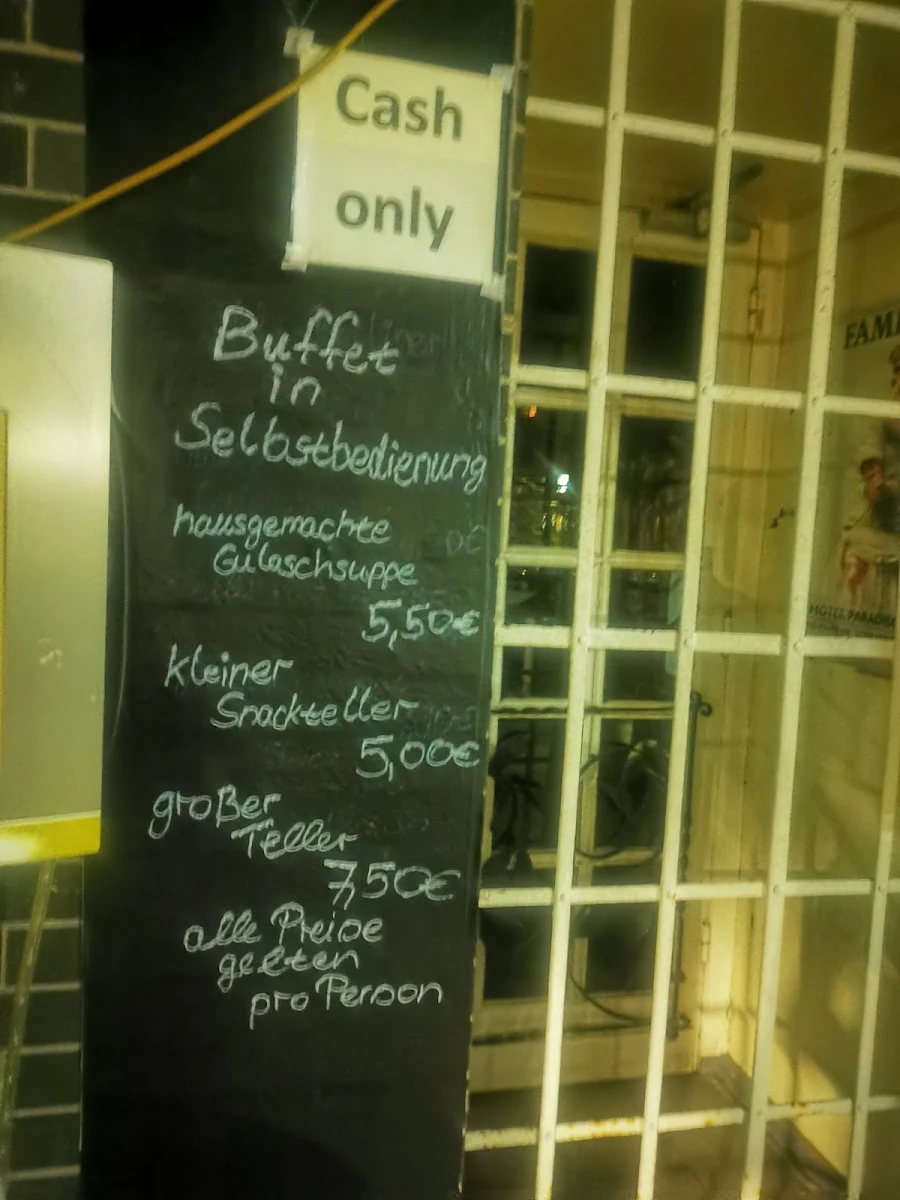 Cash
only
Buffet
in
Selbstbedienung
hausgemachte
Gulaschsuppe
5,50€
kleiner
Snackteller
5,00€
großer
Teller
7,50€
alle Preise
gelten
pro Person
HOTEL PARADIS